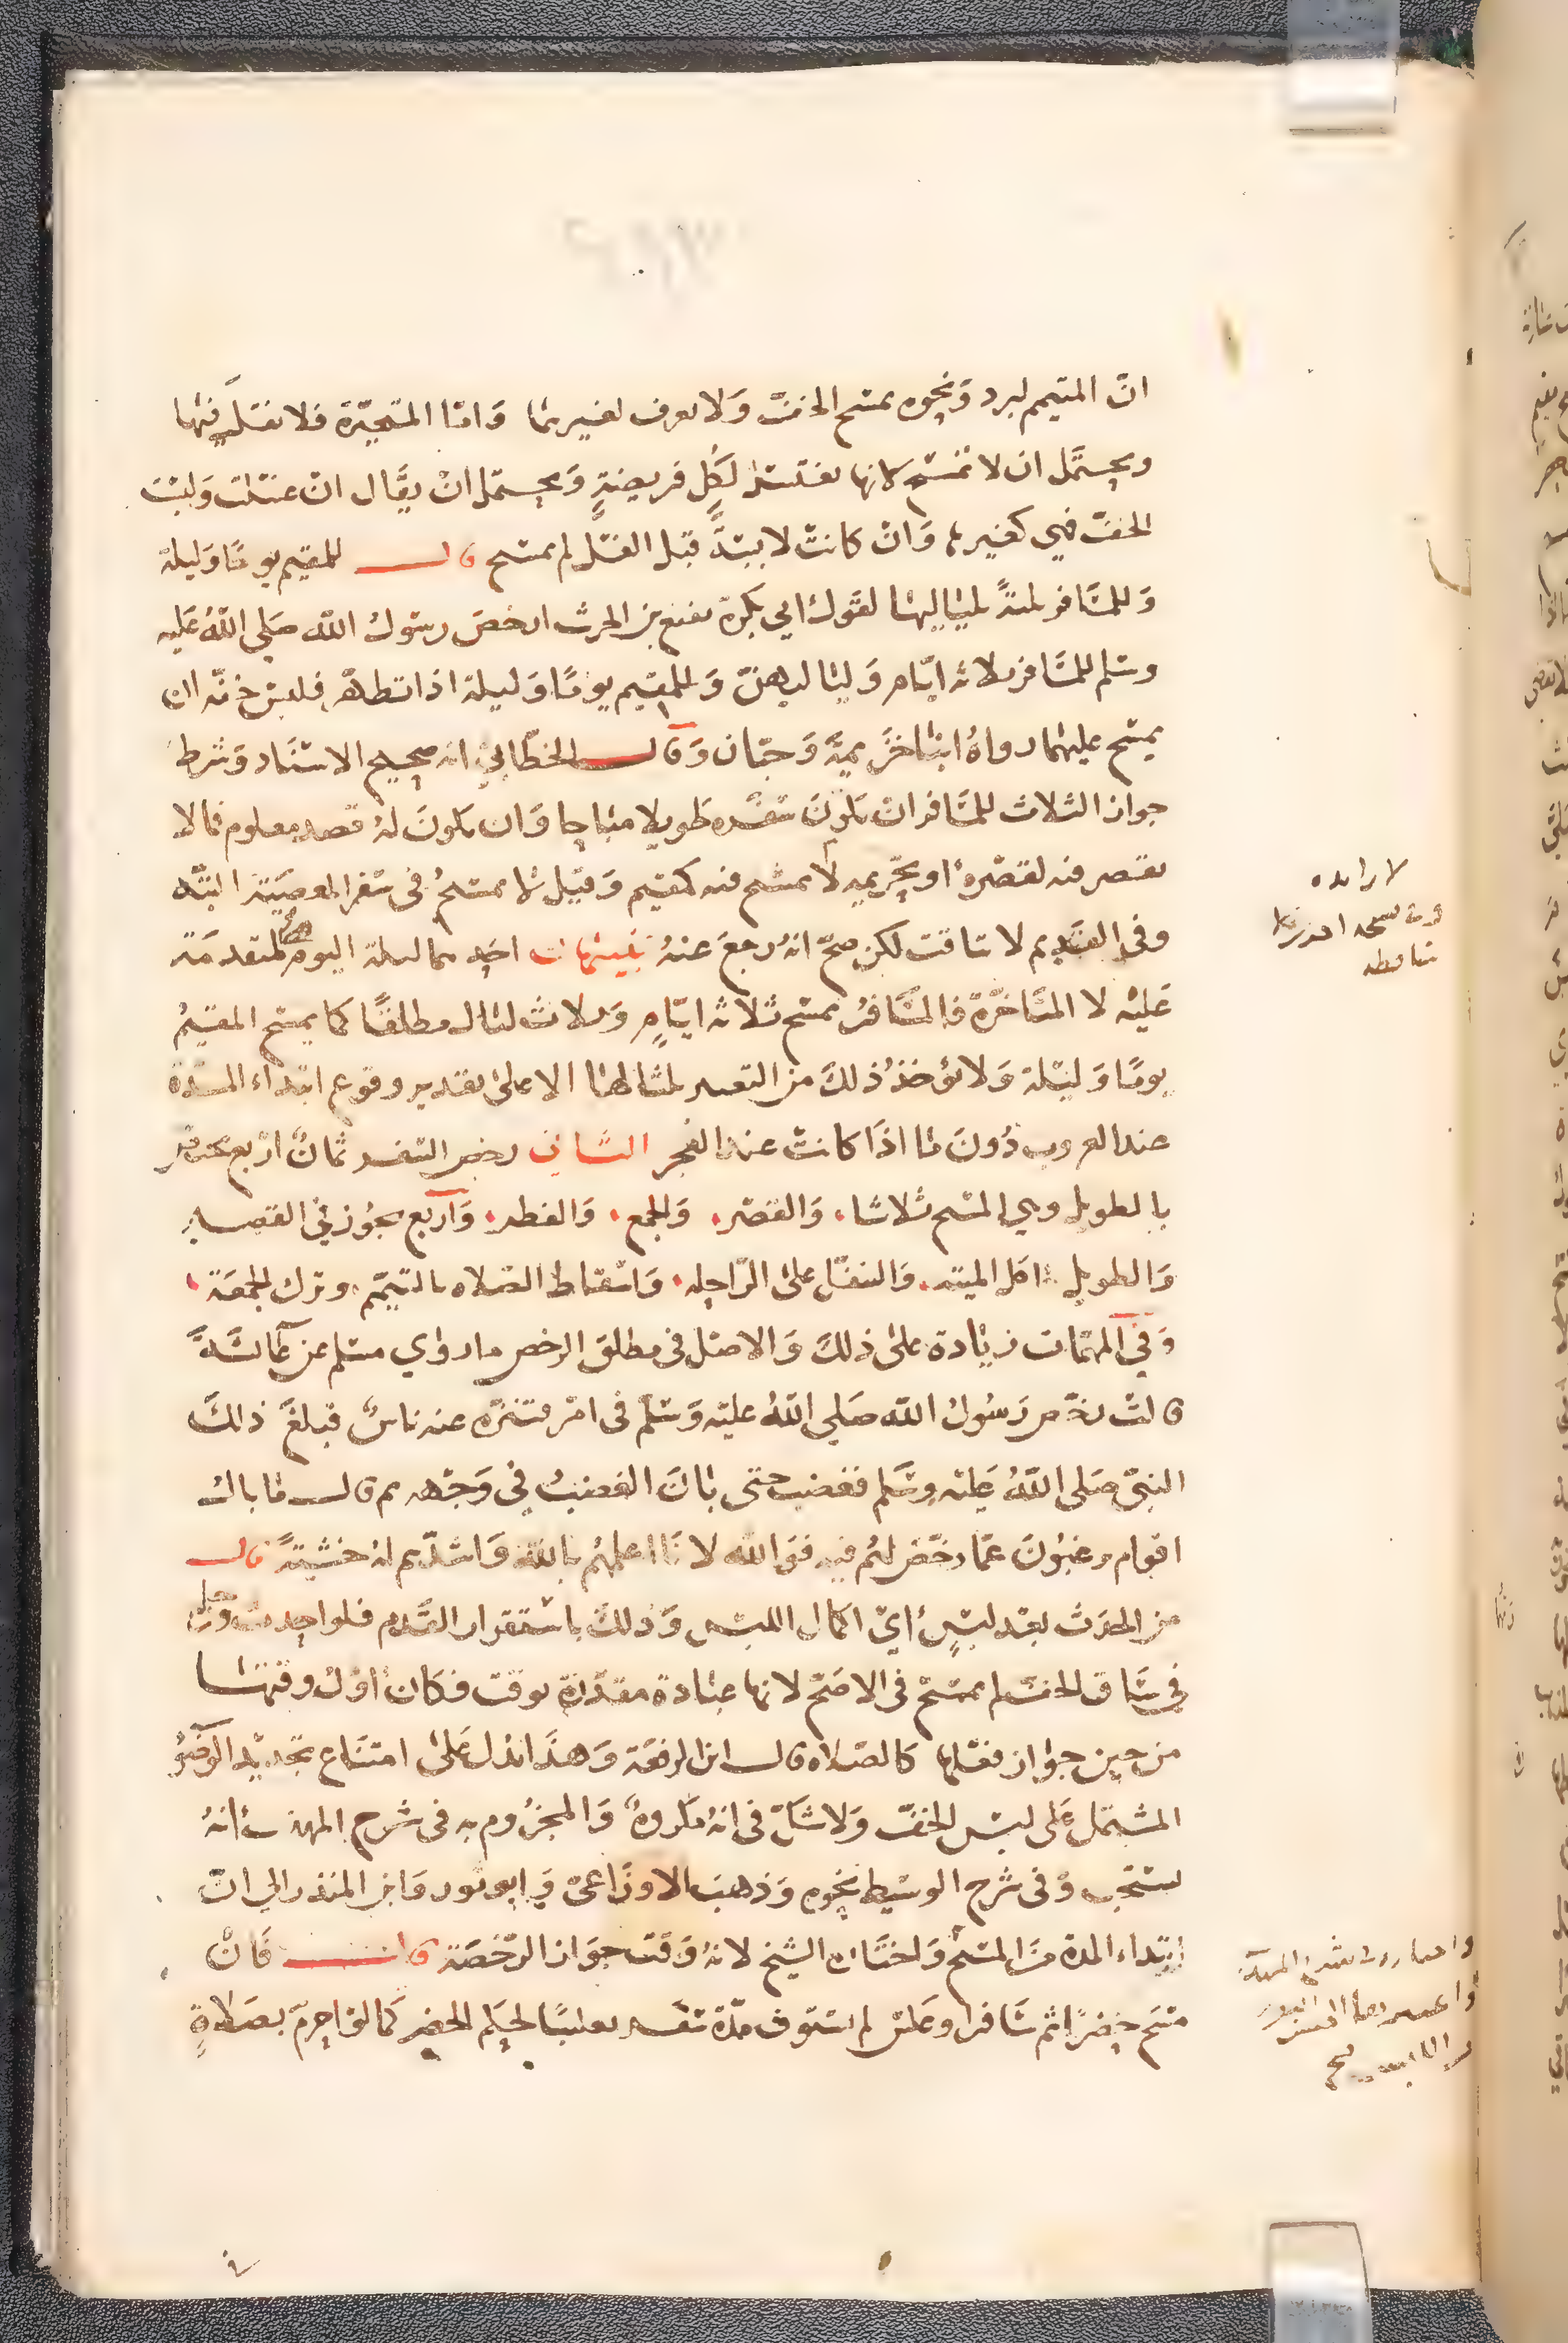 ان المتيمم لبرد ونحوه يمسح الخف ولا يعرف لغيرهما واما المتحيرة فلا نقل فيها
ويحتمل ان لا تمسح لانها تغتسل لكل فريضة ويحتمل ان يقال ان اغتسلت ولبست
الخف فهي كغيرها وان كانت لابسة قبل الغسل لم تمسح قال للمقيم يوما وليلة
وللمسافر ثلثة بلياليها لقول ابي بكرة نفيع بن الحرث ارخص رسول الله صلى الله عليه
وسلم للمسافر ثلاثة ايام ولياليهن وللمقيم يوما وليلة اذا تطهر فلبس خفيه ان
يمسح عليهما رواه ابنا خزيمة وحبان وقال الخطابي انه صحيح الاسناد وشرط
جواز الثلاث للمسافر ان يكون سفره طويلا مباحا وان يكون له قصد معلوم فما لا
يقصر فيه لقصره او تحريمه لا يمسح فيه كمقيم وقيل لا يمسح في سفر المعصية البتة
وفي القديم لا تاقت لكن صح انه رجع عنه تنبيهات احدها ليلة اليوم هي المتقدمة
عليه لا المتاخرة فالمسافر يمسح ثلاثة ايام وثلاث ليال مطلقا كما يمسح المقيم
يوما وليلة ولا يؤخذ ذلك من التعبير بلياليها الا على تقدير وقوع ابتداء المدة
عند الغروب دون ما اذا كانت عند الفجر الثاني رخص السفر ثمان اربع تختص
بالطويل وهي المسح ثلاثا والقصر والجمع والفطر واربع تجوز في القصير
والطويل اكل الميتة والتنفل على الراحلة واسقاط الصلاه بالتيمم وترك الجمعة
وفي المهمات زيادة على ذلك والاصل في مطلق الرخص ما روي مسلم عن عائشة
قالت رخص رسول الله صلى الله عليه وسلم في امر فتنزه عنه ناس فبلغ ذلك
النبي صلى الله عليه وسلم فغضب حتى بان الغضب في وجهه ثم قال ما بال
اقوام يرغبون عما رخص لهم فيه فوالله لانا اعلمهم بالله واشدهم له خشية قال
من الحدث بعد لبس اي اكمال اللبس وذلك باستقرار القدم فلو احدث ورجله
في ساق الخف لم يمسح في الاصح لانها عبادة مقدرة بوقت فكان اول وقتها
من حين جواز فعلها كالصلاه قال ابن الرفعة وهذا يدل على امتناع تجديد الوضو
المشتمل على لبس الخف ولا شك في انه مكروه والمجزوم به في شرح المهذب انه
يستحب وفي شرح الوسيط نحوه وذهب الاوزاعي وابو ثور وابن المنذر الى ان
ابتداء المدة من المسح واختاره الشيخ لانه وقت جواز الرخصة قال فان
مسح حضرا ثم سافر او عكس لم يستوف مدة سفر تغليبا لحكم الحضر كما لو احرم بصلاة
لا زايده